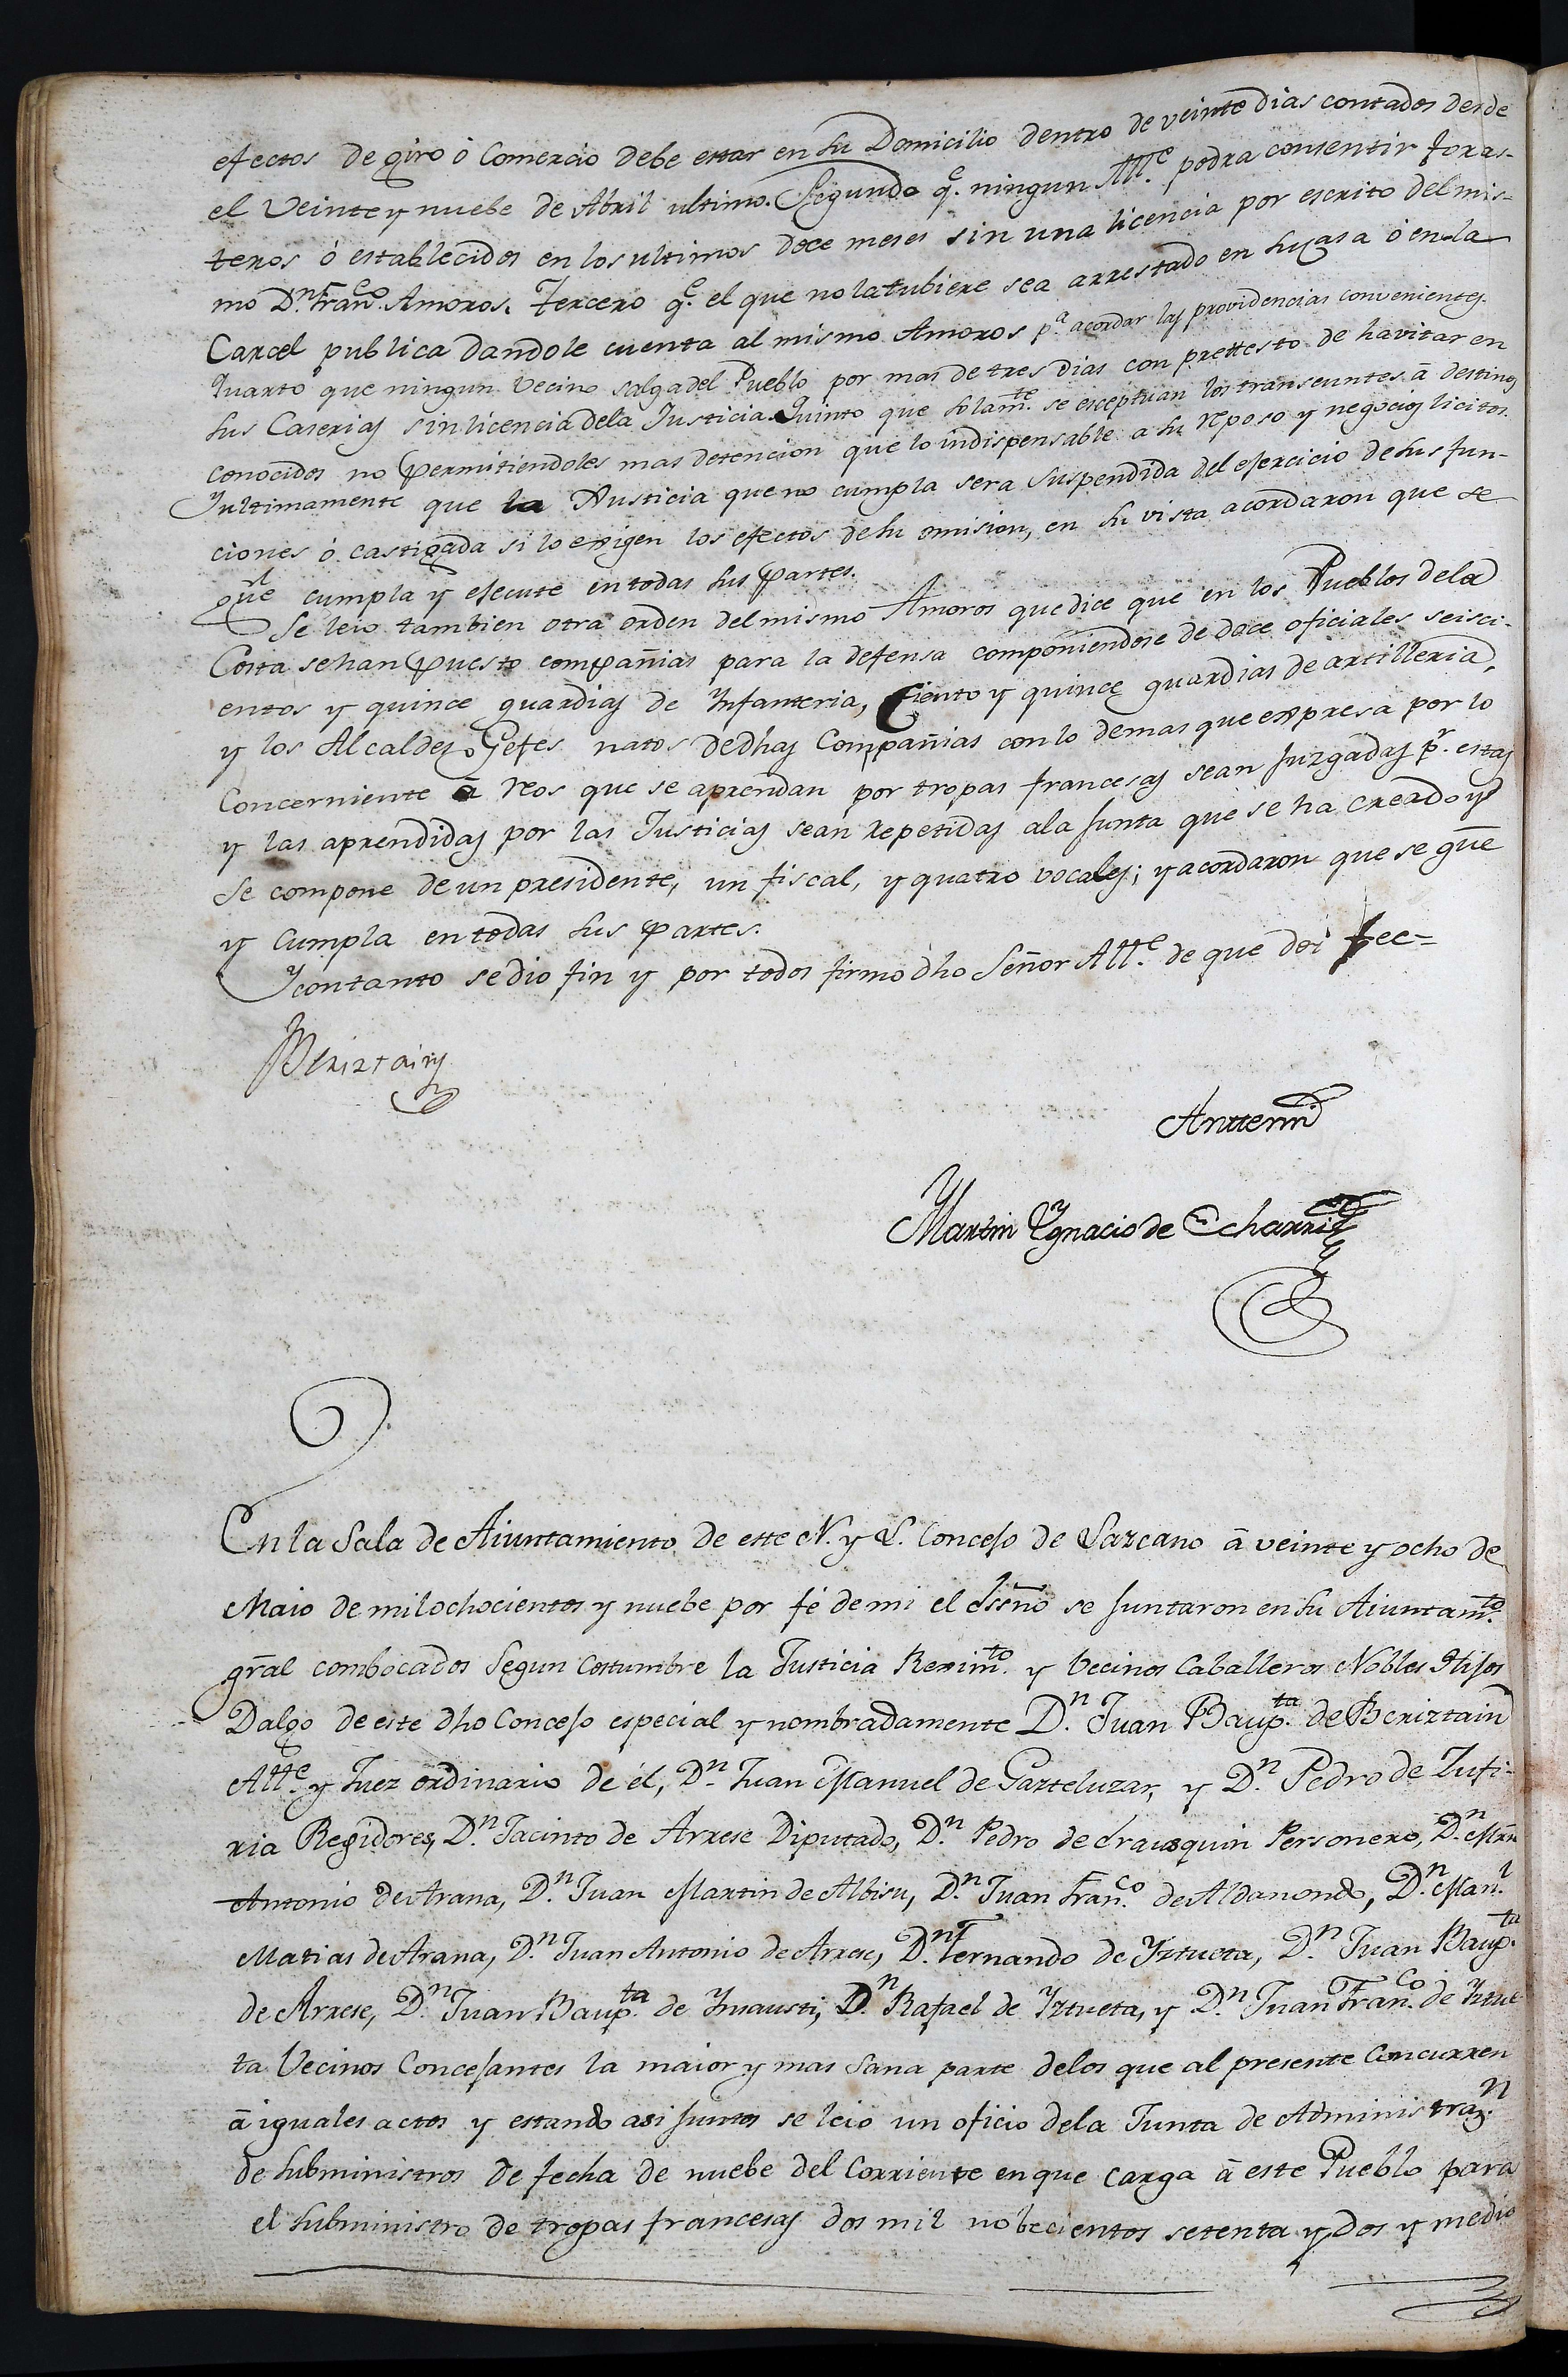 efectos de giro ó Comercio debe estar en su Domicilio dentro de veinte dias contados desde
el Veinte y nuebe de Abril ultimo. Segundo q.e ningun All.e podra consentir foras-
teros ó establecidos en los ultimos doce meses sin una licencia por escrito del mis-
mo D.n Fran.co Amoros. Tercero q.e el que no la tubiere sea arrestado en su casa ó en la
Carcel publica dandole cuenta al mismo Amoros p.a acordar las providencias convenientes.
Quarto que ningun Vecino salga del Pueblo por mas de tres dias con prettesto de havitar en
sus Caserias sin licencia dela Justicia. Quinto que solam.te se esceptuan los transeuntes ā destinos
conocidos no permitiendoles mas detencion que lo indispensable a su reposo y negocios licitos.
Y ultimamente que la Justicia que no cumpla sera suspendida del ejercicio de sus fun-
ciones ó castigada si lo exigen los efectos de su omision, en su vista acordaron que se
gūe cumpla y ejecute en todas sus partes.
Se leio tambien otra orden del mismo Amoros que dice que en los Pueblos dela
Costa se han puesto compañias para la defensa componiendose de doce oficiales seisci-
entos y quince guardias de Infanteria, Ciento y quince guardias de artilleria,
y los Alcaldes Gefes natos de dhas Compañias con lo demas que expresa por lo
Concerniente ā reos que se aprendan por tropas francesas sean Juzgadas p.r estas
y las aprendidas por las Justicias sean repetidas ala Junta que se ha creado y
se compone de un presidente, un fiscal, y quatro vocales; y acordaron que se gūe
y cumpla en todas sus partes.
Y con tanto se dio fin y por todos firmo dho Señor All.e de que doi fee=
Beriztain
Antemi
Martin Ygnacio de Echarri
En la Sala de Aiuntamiento de este N. y L. Concejo de Lazcano ā veinte y ocho de
Maio de mil ochocientos y nuebe por fé de mi el Essño se juntaron en su Aiuntam.to
grāl combocados Segun costumbre la Justicia Rexim.to y Vecinos Caballeros Nobles Hijos
Dalgo de este dho Concejo especial y nombradamente D.n Juan Baup.ta de Beriztain
All.e y Juez ordinario de él, D.n Juan Manuel de Gazteluzar, y D.n Pedro de Zufi-
ria Regidores, D.n Jacinto de Arrese Diputado, D.n Pedro de Erausquin Personero, D.n Mrn
Antonio de Arana, D.n Juan Martin de Albisu, D.n Juan Fran.co de Aldanondo, D.n Man.l
Matias de Arana, D.n Juan Antonio de Arrese, D.n Fernando de Yztueta, D.n Juan Baup.ta
de Arrese, D.n Juan Baup.ta de Ynausti, D.n Rafael de Yztueta, y D.n Juan Fran.co de Yztue
ta Vecinos Concejantes la maior y mas sana parte delos que al presente concurren
ā iguales actos y estando asi juntos se leio un oficio dela Junta de Administraz.n
de subministros de fecha de nuebe del Corriente en que carga ā este Pueblo para
el subministro de tropas francesas dos mil nobecientos setenta y dos y medio